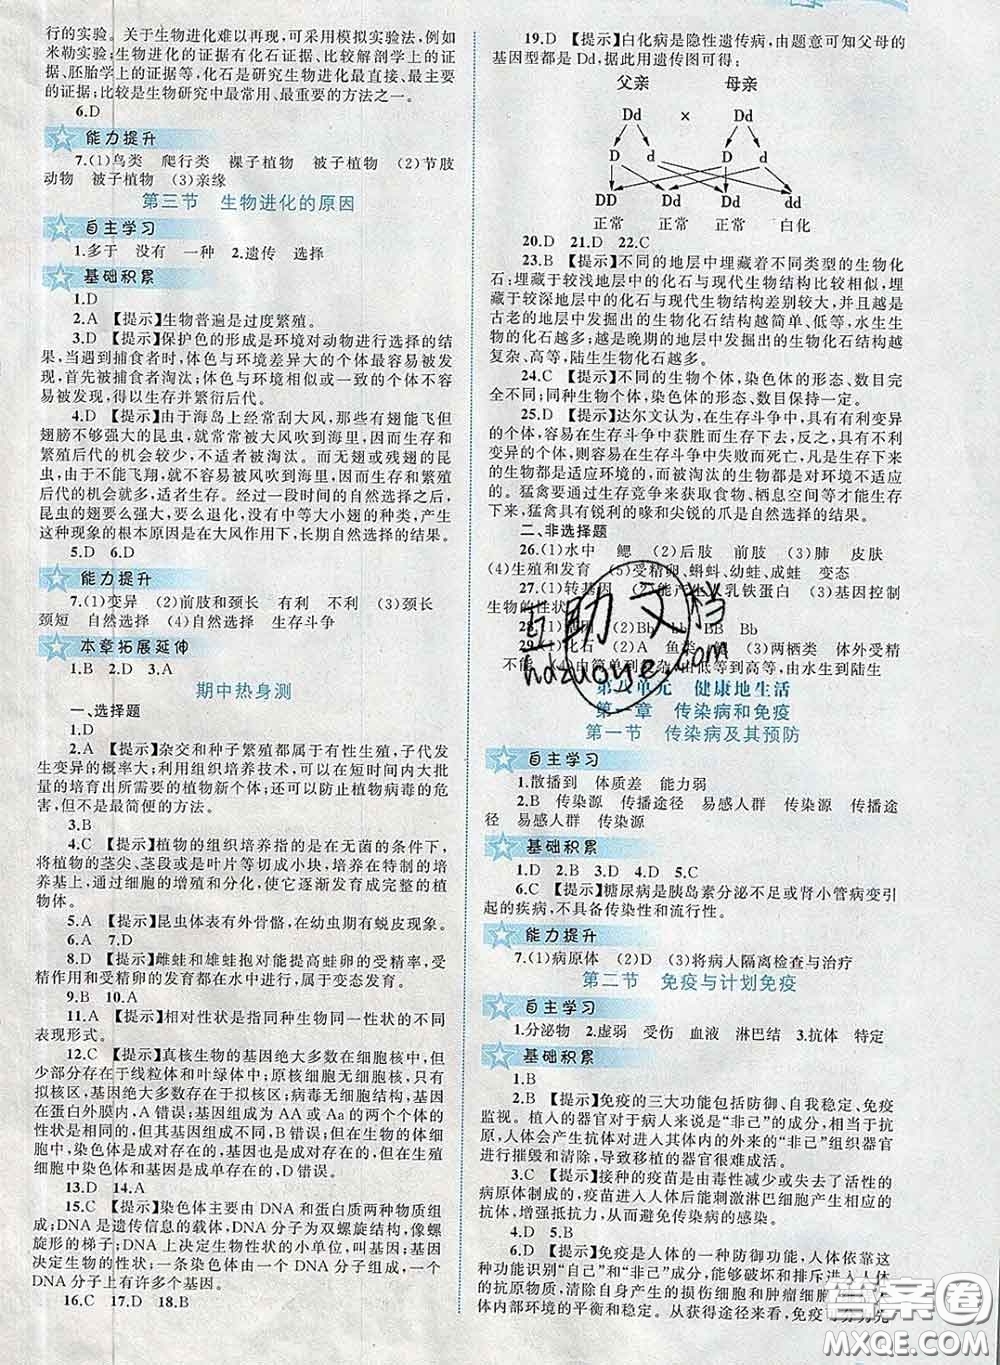 行的实验。关于生物进化难以再现,可采用模拟实验法,例如
米勒实验;生物进化的证据有化石证据、比较解剖学上的证
据、胚胎学上的证据等,化石是研究生物进化最直接、最主要
的证据;比较是生物研究中最常用、最重要的方法之一。
6.D
能力提升
7.(1)鸟类 爬行类 裸子植物 被子植物 (2)节肢
动物 被子植物 (3)亲缘
第三节 生物进化的原因
自主学习
1.多于 没有 一种 2.遗传 选择
基础积累
1.D
2.A 【提示】生物普遍是过度繁殖。
3.D 【提示】保护色的形成是环境对动物进行选择的结
果,当遇到捕食者时,体色与环境差异大的个体最容易被发
现,首先被捕食者淘汰;体色与环境相似的个体不容易被发
现,得以生存并繁衍后代。
4.D 【提示】由于海岛上经常刮大风,那些有翅能飞但
翅膀不够强大的昆虫,就常常被大风吹到海里,因而生存和
繁殖后代的机会较少。而无翅或残翅的昆虫,
由于不能飞翔,就不容易被风吹到海里,因而生存和繁殖
后代的机会就多,适者生存。经过一段时间的自然选择,
昆虫的翅要么变大,要么退化,没有中等大小翅的种类,产生
这种现象的根本原因是在大风作用下,长期自然选择的结果。
5.D 6.D
能力提升
7.(1)变异 (2)前肢和颈长 有利 不利 (3)颈长
颈短 自然选择 (4)自然选择 生存斗争
本章拓展延伸
1.B 2.D 3.A
期中热身测
一、选择题
1.D
2.A 【提示】杂交和种子繁殖都属于有性生殖,子代发
生变异的概率大;利用组织培养技术,可以在短时间内大批
量的培育出所需要的植物新个体;还可以防止植物病毒的危
害,但不是最简便的方法。
3.B
4.C 【提示】植物的组织培养是在无菌的条件下,
将植物的茎尖、茎段或是叶片等切成小块,培养在特制的培
养基上,通过细胞的增殖和分化,使它逐渐发育成完整的植
物体。
5.A 【提示】昆虫体表有外骨骼,在幼虫期有蜕皮现象。
6.A 7.D
8.D 【提示】雌蛙和雄蛙抱对能提高蛙卵的受精率,受
精和受精卵的发育都在水中进行,其发育为变态发育。
9.B 10.A
11.A 【提示】相对性状是指同种生物同一性状的不同
表现形式。
12.C 【提示】真核生物的基因绝大多数在细胞核中,但
少部分存在于线粒体和叶绿体中;原核细胞无细胞核,只有
拟核区,基因绝大多数存在于拟核区;病毒无细胞结构,基因
在蛋白外膜内,A错误;基因组成为AA或Aa的两个个体的
性状是相同的,但基因组成不同,B错误;在生物的体细
胞中,染色体是成对存在的,基因也是成对存在的,但在生殖
细胞中染色体和基因是成单存在的,D错误。
13.D 14.A
15.C 【提示】染色体主要由DNA和蛋白质两种物质组
成;DNA是遗传信息的载体,DNA分子为双螺旋结构,像螺
旋形的梯子;DNA上决定生物性状的小单位,叫基因。基因
决定生物的性状;一条染色体通常包含一个DNA分子,一个
DNA分子上有许多个基因。
16.C 17.D 18.B
19.D 【提示】白化病是隐性遗传病,由题意可知父母的
基因型都是Dd,据此用遗传图可得:
父亲 母亲
Dd × Dd
D d D d
DD Dd Dd dd
正常 正常 正常 白化
20.D 21.D 22.C
23.B 【提示】不同的地层中埋藏着不同类型的生物化
石;埋藏于较浅地层中的化石与现代生物结构比较相似,埋
藏于较深地层中的化石与现代生物结构差别较大,并且越
古老的地层中发掘出的生物化石结构越简单、低等,水生生
物的化石越多;越是晚期的地层中发掘出的生物化石结构越
复杂、高等,陆生生物化石越多。
24.C 【提示】不同的生物个体,染色体的形态、数目完
全不同;同种生物个体,染色体的形态、数目保持一定。
25.D 【提示】达尔文认为,在生存斗争中,具有有利变异
的个体,容易在生存斗争中获胜而生存下去,反之,具有不利
变异的个体,容易在生存斗争中失败而死亡。凡是生存下来
的生物都是适应环境的,而被淘汰的生物都是对环境不适应
的。猛禽要通过生存竞争来获取食物、栖息空间等才能生存
下去,猛禽具有锐利的喙和尖锐的爪是自然选择的结果。
二、非选择题
26.(1)水中 鳃 (2)后肢 前肢 (3)肺 皮肤
(4)生殖和发育 (5)受精卵、蝌蚪、幼蛙、成蛙 变态
27.(1)转基因 (2)能产生人乳铁蛋白 (3)基因控制
生物的性状
28. (2)Bb bb BB Bb
29.(1)化石 (2)A 鱼类 (3)两栖类 体外受精
不能 (4)由简单到复杂,由低等到高等,由水生到陆生
第八单元 健康地生活
第一章 传染病和免疫
第一节 传染病及其预防
自主学习
1.散播到 体质差 能力弱
2.B 传染源 传播途径 易感人群 传染源 传播途
径 易感人群 传染源
基础积累
1.D 2.B 3.D 4.D 5.C
6.C 【提示】糖尿病是胰岛素分泌不足或肾小管病变引
起的疾病,不具备传染性和流行性。
能力提升
7.(1)病原体 (2)D (3)将病人隔离检查与治疗
第二节 免疫与计划免疫
自主学习
1.分泌物 2.虚弱 受伤 血液 淋巴结 3.抗体 特定
基础积累
1.B
2.B 【提示】免疫的三大功能包括防御、自我稳定、免疫
监视。植入的器官对于病人来说是“非己”的成分,相当于抗
原,人体会产生抗体对进入其体内的外来的“非己”组织器官
进行摧毁和清除,导致移植的器官很难成活。
3.C 【提示】接种的疫苗是由毒性减少或失去了活性的
病原体制成的,疫苗进入人体后能刺激淋巴细胞产生相应的
抗体,增强抵抗力,从而避免传染病的感染。
4.D 5.B
6.D 【提示】免疫是人体的一种防御功能,人体依靠这
种功能识别“自己”和“非己”成分,能够破坏和排斥进入人体
的抗原物质,清除自身产生的损伤细胞和肿瘤细胞
体内部环境的平衡和稳定。从获得途径来看,免疫
互助文档
hdzuoye.com
答案圈
MXQE.COM